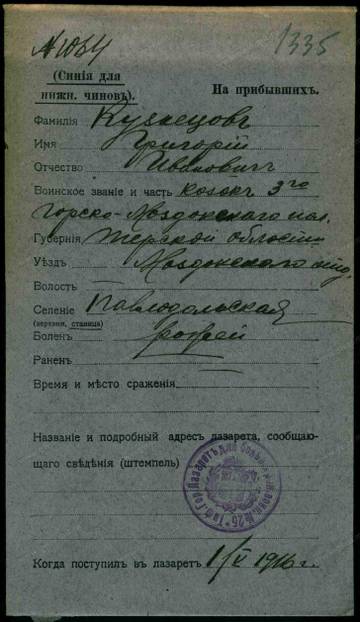 № 1034
1335
(Синія для
нижн. чиновъ).
На прибывшихъ.
Фамилія Кузнецовъ
Имя Григорій
Отчество Ивановичъ
Воинское званіе и часть козакъ 3го
Горско-Моздокскаго пол.
Губернія Терской области
Уѣздъ Моздокскаго
Волость
Селеніе Павлодольская
(верхняя, станица)
Боленъ
Раненъ
Время и мѣсто сраженія
Названіе и подробный адресъ лазарета, сообщаю-
щаго свѣдѣнія (штемпель)
Лазаретъ для больн. № 26
Когда поступилъ въ лазаретъ 1/V 1916 г.